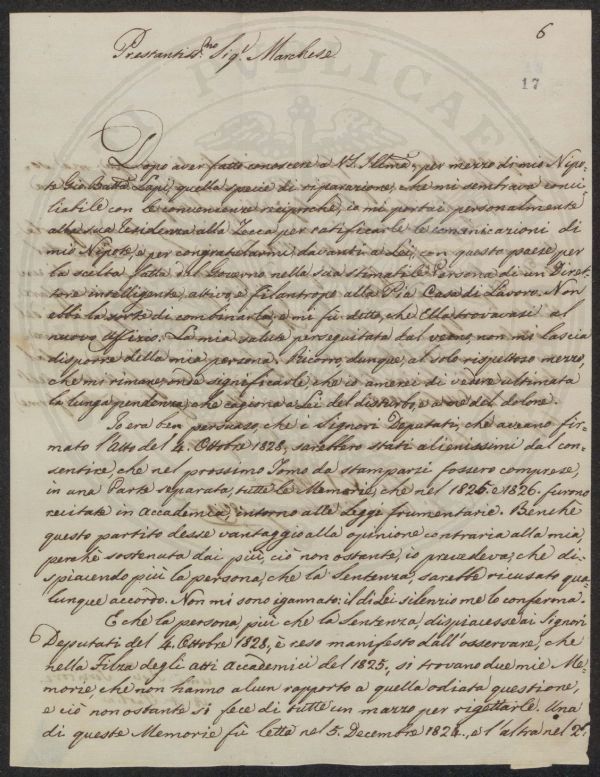 6
17
Prestantiss.mo Sig.r Marchese
Dopo aver fatto conoscere a V.S. Illma, per mezzo di mio Nipo-
te Gio Batta Lapi, quella specie di riparazione, che mi sembrava conci-
liabile con le convenienze reciproche, io mi portai personalmente
alla sua Residenza alla Zecca per ratificarle le comunicazioni di
mio Nipote, e per congratularmi davanti a Lei, con questo paese per
la scelta fatta dal Governo nella sua stimabile Persona di un Diret-
tore intelligente, attivo, e filantropo alla Pia Casa di Lavoro. Non
ebbi la sorte di combinarla, e mi fù detto, che Ella trovavasi al
nuovo Uffizio. La mia salute perseguitata dal verno, non mi lascia
disporre della mia persona. Ricorro, dunque, al solo rispettoso mezzo,
che mi rimane, onde significarle, che io amerei di vedere ultimata
la lunga pendenza, che cagiona a Lei del disturbo, e a me del dolore.
Io era ben persuaso, che i Signori Deputati, che aveano fir-
mato l'Atto del 4. Ottobre 1828, sarebbero stati alienissimi dal con-
sentire, che nel prossimo Tomo da stamparsi fossero comprese,
in una Parte separata, tutte le Memorie, che nel 1825 e 1826. furono
recitate in Accademia, intorno alle legge frumentarie. Benchè
questo partito desse vantaggio alla opinione contraria alla mia,
perchè sostenuta dai più, ciò non ostante, io prevedeva, che di-
spiacendo più la persona, che la Sentenza, sarebbe ricusato qua-
lunque accordo. Non mi sono igannato: il di Lei silenzio me lo conferma.
E che la persona, più che la sentenza, dispiacesse ai Signori
Deputati del 4. Ottobre 1828, è reso manifesto dall'osservare, che
nella Filza degli atti Accademici del 1825, si trovano due mie Me-
morie, che non hanno alcun rapporto a quella odiata questione,
e ciò non ostante si fece di tutte un mazzo per rigettarle. Una
di queste Memorie fù letta nel 5. Decembre 1824, e l'altra nel